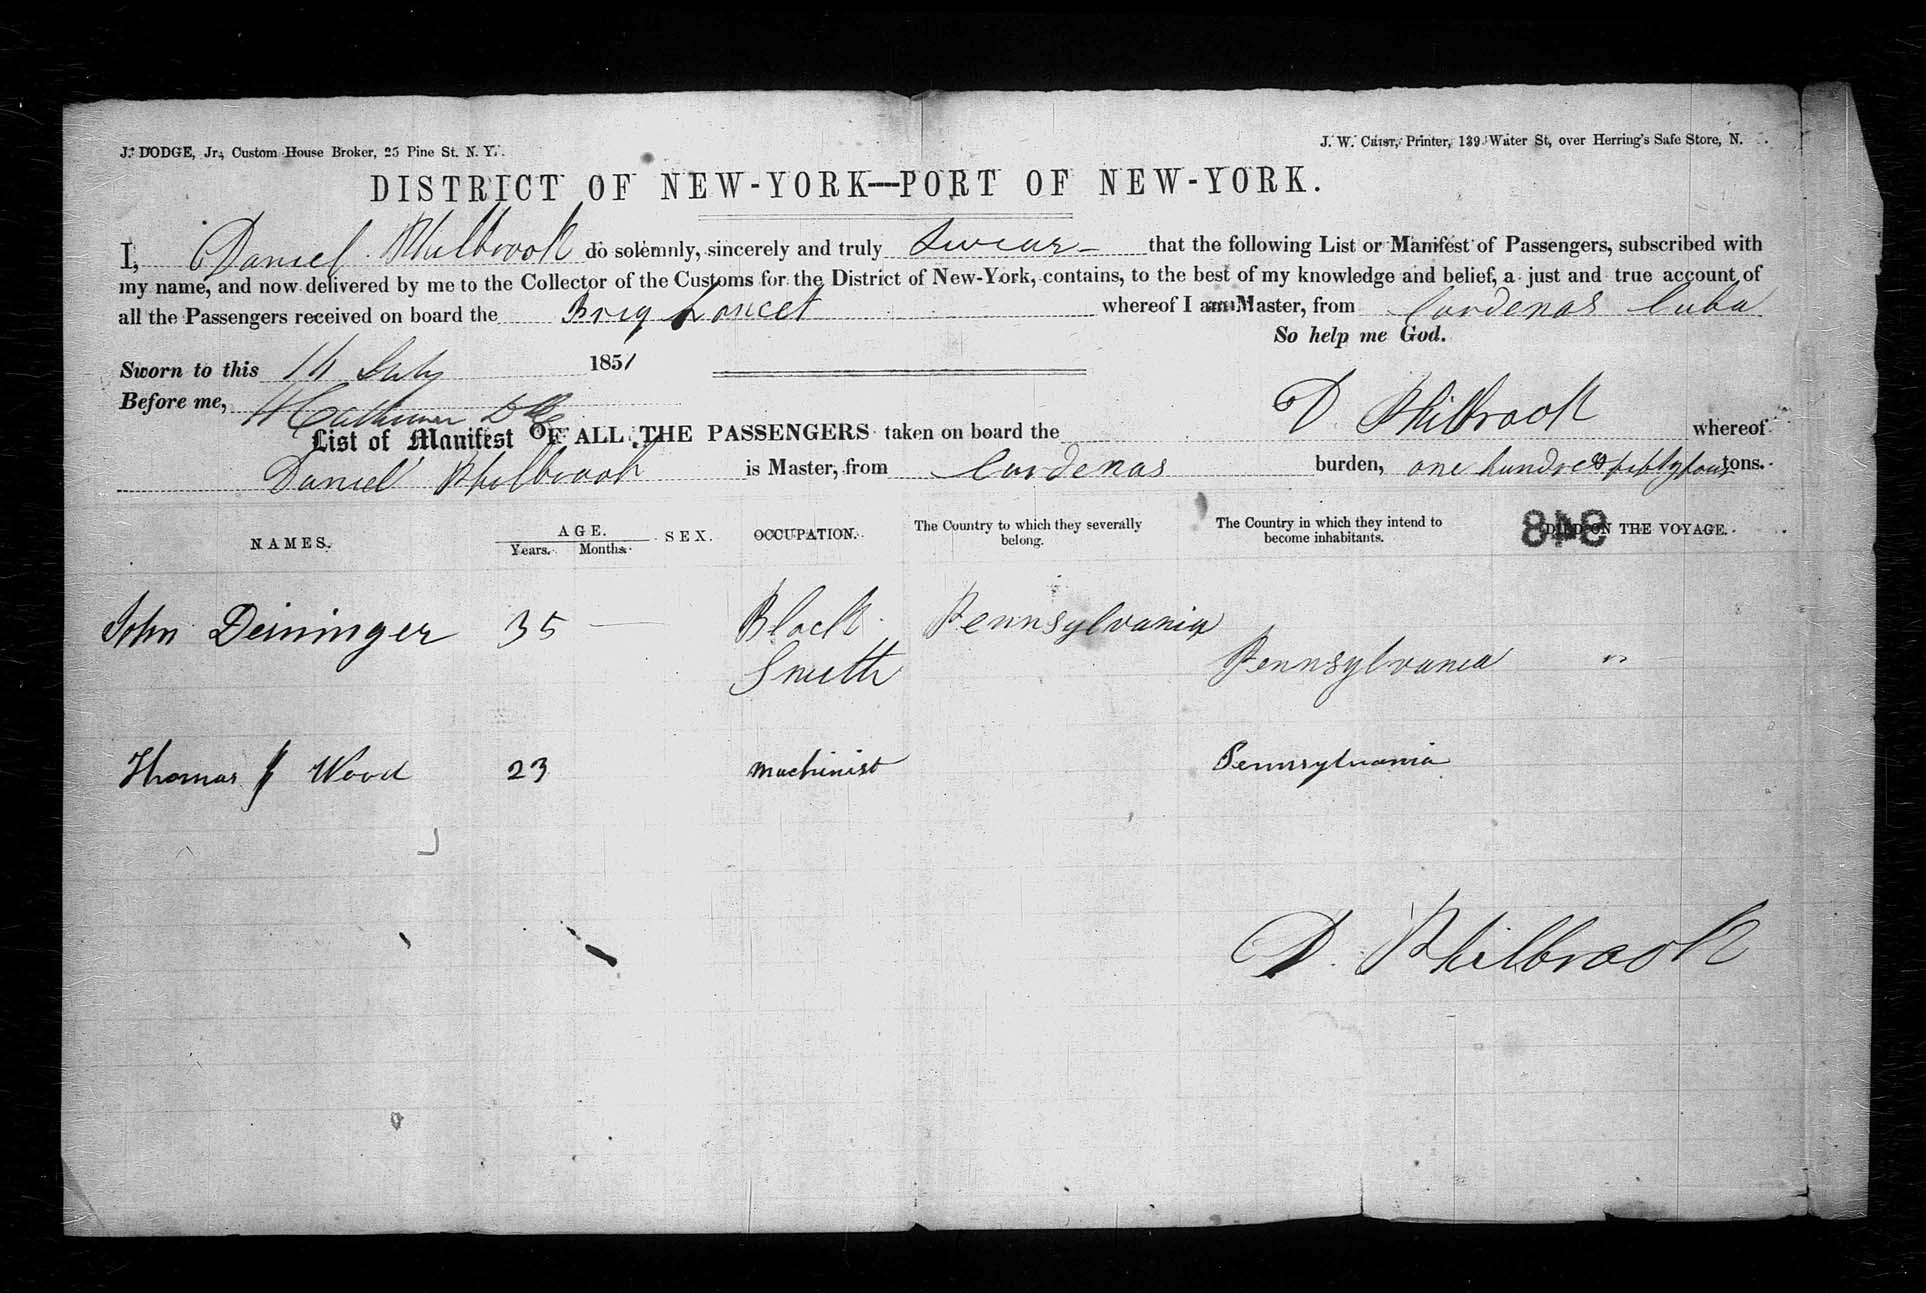 J. DODGE, Jr., Custom House Broker, 25 Pine St. N. Y.
J. W. Crist, Printer, 139 Water St, over Herring's Safe Store, N.
DISTRICT OF NEW-YORK—PORT OF NEW-YORK.
I, Daniel Philbrook do solemnly, sincerely and truly Swear that the following List or Manifest of Passengers, subscribed with
my name, and now delivered by me to the Collector of the Customs for the District of New-York, contains, to the best of my knowledge and belief, a just and true account of
all the Passengers received on board the Brig Lancet whereof I am Master, from Cardenas Cuba
So help me God.
Sworn to this 14 July 1851
Before me,
List of Manifest OF ALL THE PASSENGERS taken on board the D Philbrook whereof
Daniel Philbrook is Master, from Cardenas burden, one hundred & fifty four tons.
NAMES. AGE. Years. Months. SEX. OCCUPATION. The Country to which they severally belong. The Country in which they intend to become inhabitants. DIED ON THE VOYAGE.
848
John Deininger 35 — Black Pennsylvania
Smith Pennsylvania "
Thomas J Wood 23 machinist Pennsylvania
D. Philbrook